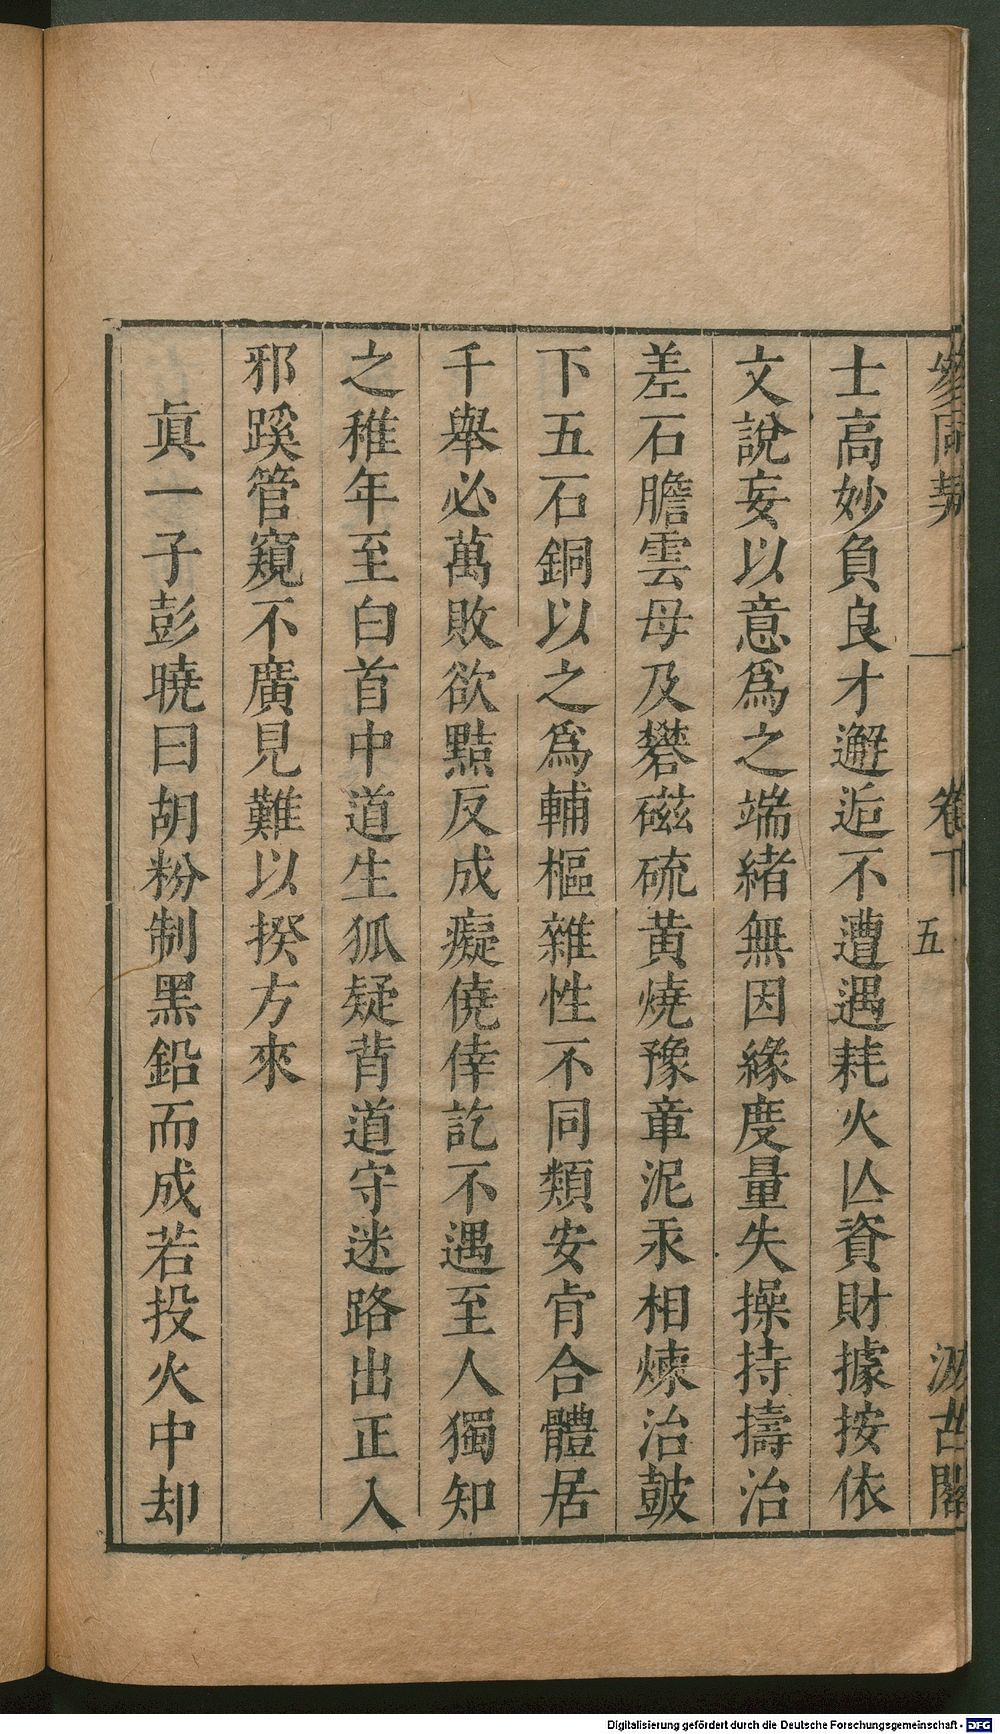 參同契 卷下 五 汲古閣
士高妙負良才邂逅不遭遇耗火亾資財據按依
文說妄以意爲之端緒無因緣度量失操持擣治
差石膽雲母及礬磁硫黃燒豫章泥汞相煉治鼓
下五石銅以之爲輔樞雜性不同類安肯合體居
千舉必萬敗欲黠反成癡僥倖訖不遇至人獨知
之稚年至白首中道生狐疑背道守迷路出正入
邪蹊管窺不廣見難以揆方來
眞一子彭曉曰胡粉制黑鉛而成若投火中却
Digitalisierung gefördert durch die Deutsche Forschungsgemeinschaft - DFG